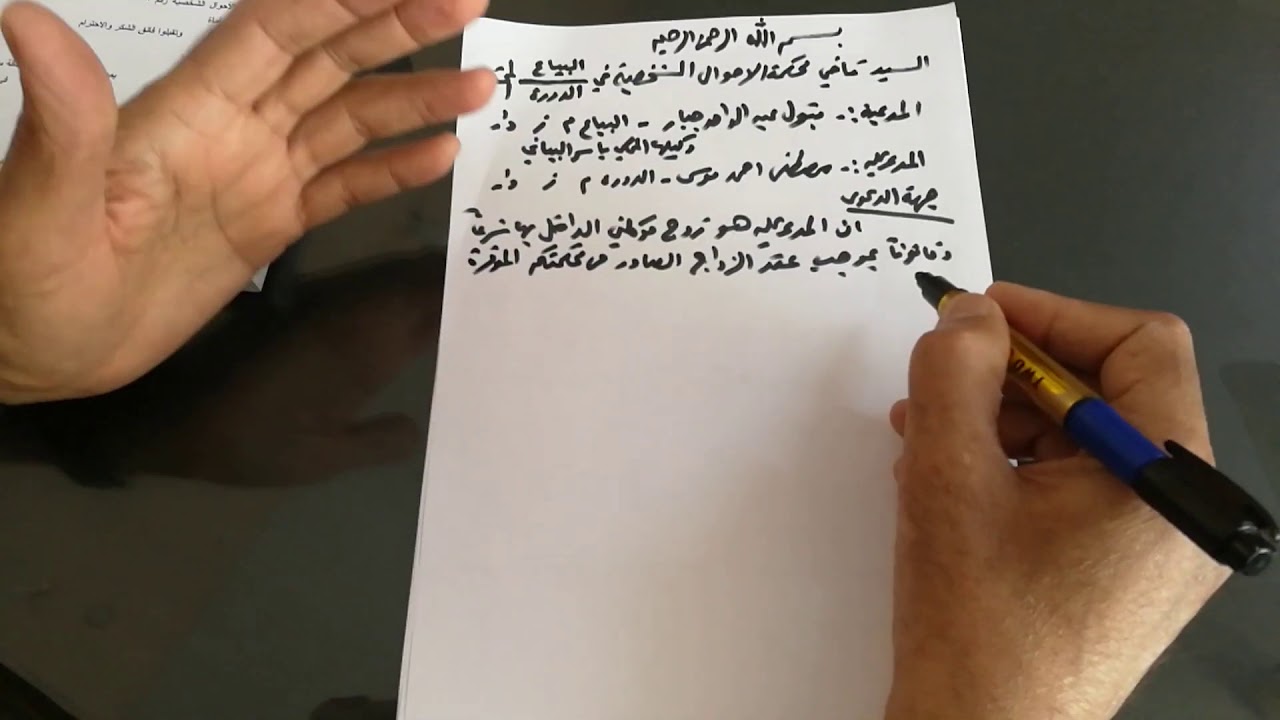 الاحوال الشخصية رقم
وتقبلوا فائق الشكر والاحترام
بسم الله الرحمن الرحيم
السيد قاضي محكمة الاحوال الشخصية في البياع
الدورة
المدعية :- بتول عبد الواحد جبار - البياع م ز د/-
وكيلها المحامي ياسر البياتي
المدعى عليه :- مصطفى احمد موسى - الدورة م ز د/-
جهة الدعوى
ان المدعى عليه هو زوج موكلتي الداخل بها شرعاً
وقانوناً بموجب عقد الزواج الصادر من محكمتكم الموقرة